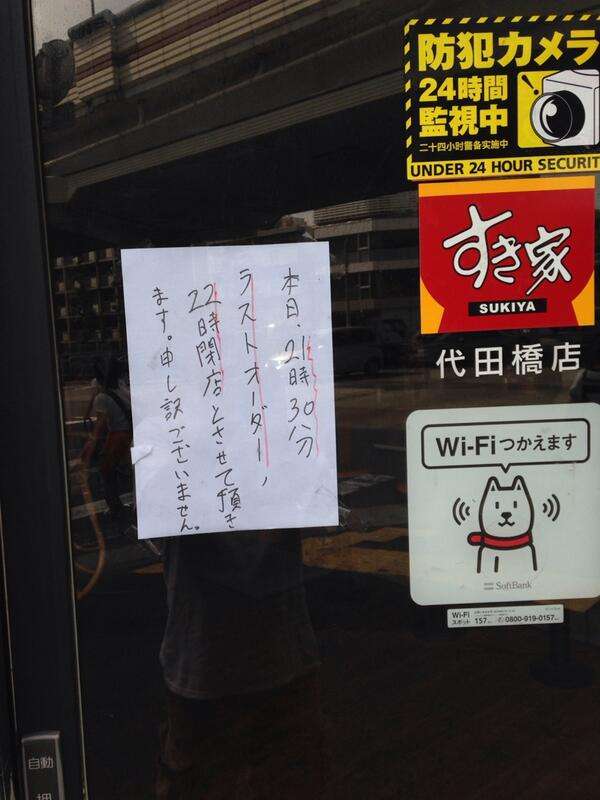 防犯カメラ
24時間
監視中
二十四小时警备实施中
UNDER 24 HOUR SECURIT
すき家
SUKIYA
代田橋店
本日、21時30分
ラストオーダー、
22時閉店とさせて頂き
ます。申し訳ございません。
Wi-Fiつかえます
SoftBank
Wi-Fi
スポット
157
0800-919-0157
自動
押